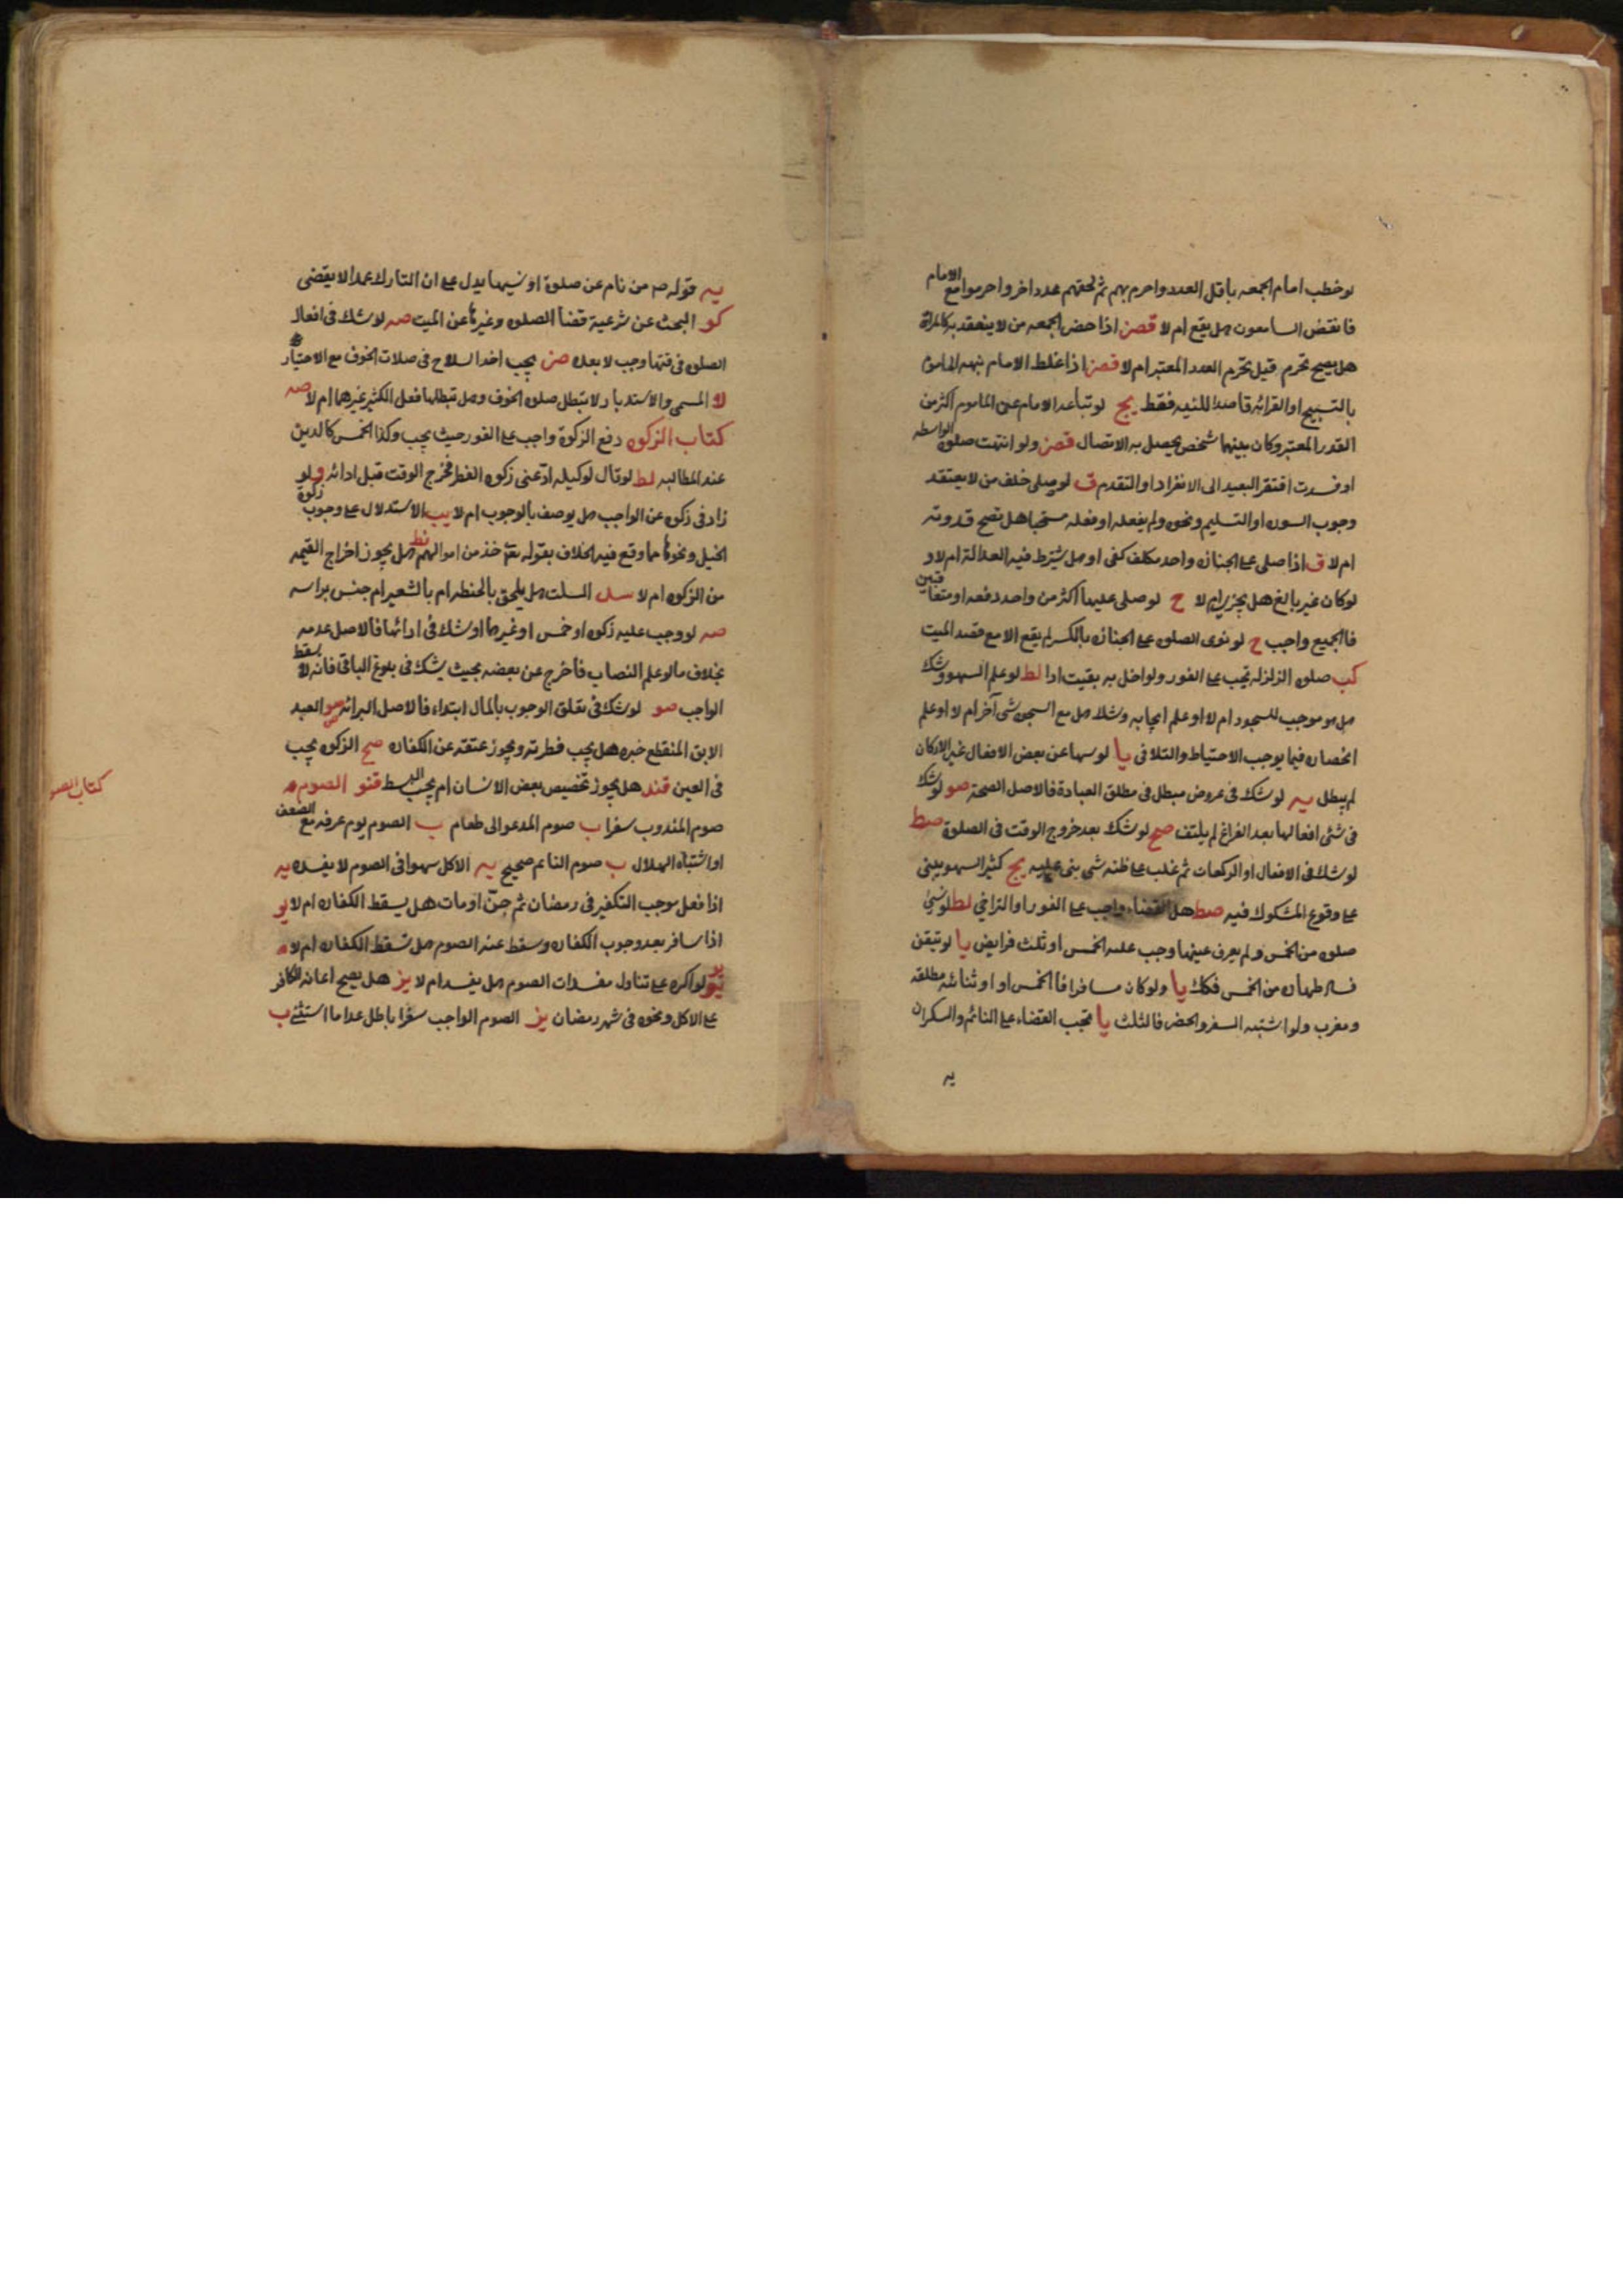 لو خطب امام الجمعه باقل العدد واحرم بهم ثم لحقهم عدد اخر واحرموا مع الامام
فانفض السامعون هل يقع ام لا قصن اذا حضر الجمعه من لا ينعقد به كالمراة
هل يصح تحرم قبل تحرم العدد المعتبر ام لا قصن اذا غلط الامام نبهه الماموم
بالتسبيح او القرائه قاصدا للتنبيه فقط يج لو تباعد الامام عن الماموم اكثر من
القدر المعتبر وكان بينهما شخص يحصل به الاتصال قصن ولو انتهت صلوة الواسطه
او فسدت افتقر البعيد الى الانفراد او التقدم ق لو صلى خلف من لا يعتقد
وجوب السوره او التسليم ونحوه ولم يفعله او فعله مستحبا هل تصح قدوته
ام لا ق اذا صلى على الجنازه واحد مكلف كفى او هل يشترط فيه العدالة ام لا و
لو كان غير بالغ هل يجزى ام لا ح لو صلى عليها اكثر من واحد دفعه او متعاقبين
فالجميع واجب ح لو نوى الصلوه على الجنازه بالكسر لم يقع الا مع قصد الميت
كب صلوه الزلزله تجب على الفور ولو اخل به بقيت ادا لط لو علم السهو وشك
هل هو موجب للسجود ام لا او علم ايجابه وشك هل مع السجود شى آخر ام لا او علم
انحصاره فيما يوجب الاحتياط والتلافى يا لو سها عن بعض الافعال غير الاركان
لم يبطل يه لو شك فى عروض مبطل فى مطلق العبادة فالاصل الصحة صو لو شك
فى شئ افعالها بعد الفراغ لم يلتفت صح لو شك بعد خروج الوقت فى الصلوة صط
لو شك فى الافعال او الركعات ثم غلب على ظنه شى بنى عليه يج كثير السهو يبنى
على وقوع المشكوك فيه صط هل القضاء واجب على الفور او التراخي لط لو نسي
صلوه من الخمس ولم يعرف عينها وجب عليه الخمس او ثلث فرايض يا لو تيقن
فساد طهارة من الخمس فكك يا ولو كان مسافرا فالخمس او ثنائيه مطلقه
ومغرب ولو اشتبه السفر والحضر فالثلث يا تجب القضاء على النائم والسكران
يه
يه قوله ص من نام عن صلوة او نسيها يدل على ان التارك عمدا لا يقضى
كو البحث عن شرعية قضا الصلوه وغيرها عن الميت صه لو شك فى افعال
الصلوه فى وقتها وجب لا بعده صن يجب اخذ السلاح فى صلات الخوف مع الاحتيار
لا المسمى والاستدبار لا تبطل صلوه الخوف وهل تبطلها فعل الكثير غيرهما ام لا صه
كتاب الزكوه دفع الزكوة واجب على الفور حيث يجب وكذا الخمس كالدين
عند المطالبه لط لو قال لوكيله اد عنى زكوه الفطر فخرج الوقت قبل ادائه و لو
زاد فى زكوه عن الواجب هل يوصف بالوجوب ام لا يب الاستدلال على وجوب زكوة
الخيل ونحوها مما وقع فيه الخلاف بقوله تعم خذ من اموالهم نط هل يجوز اخراج القيمه
من الزكوه ام لا سل السلت هل يلحق بالحنطه ام بالشعير ام جنس براسه
صه لو وجب عليه زكوه او خمس او غيرها او شك فى ادائها فالاصل عدمه
بخلاف ما لو علم النصاب فاخرج عن بعضه بحيث يشك فى بلوغ الباقى فانه لا يسقط
الواجب صو لو شك فى تعلق الوجوب بالمال ابتداء فالاصل البرائه صو العبد
الابق المنقطع خبره هل يجب فطرته ويجوز عتقه عن الكفاره صح الزكوه يجب
فى العين قند هل يجوز تخصيص بعض الانسان ام يجب البسط قنو الصوم م
صوم المندوب سفرا ب صوم المدعو الى طعام ب الصوم يوم عرفه مع الضعف
او اشتباه الهلال ب صوم النائم صحيح يه الاكل سهوا فى الصوم لا يفسده يه
اذا فعل موجب التكفير فى رمضان ثم جن او مات هل يسقط الكفاره ام لا يو
اذا سافر بعد وجوب الكفاره وسقط عنه الصوم هل تسقط الكفاره ام لا م
يو لو اكره على تناول مفسدات الصوم هل يفسد ام لا يز هل يصح اعانه الكافر
على الاكل ونحوه فى شهر رمضان يز الصوم الواجب سفرا باطل عدا ما استثنے ب
كتاب الصو